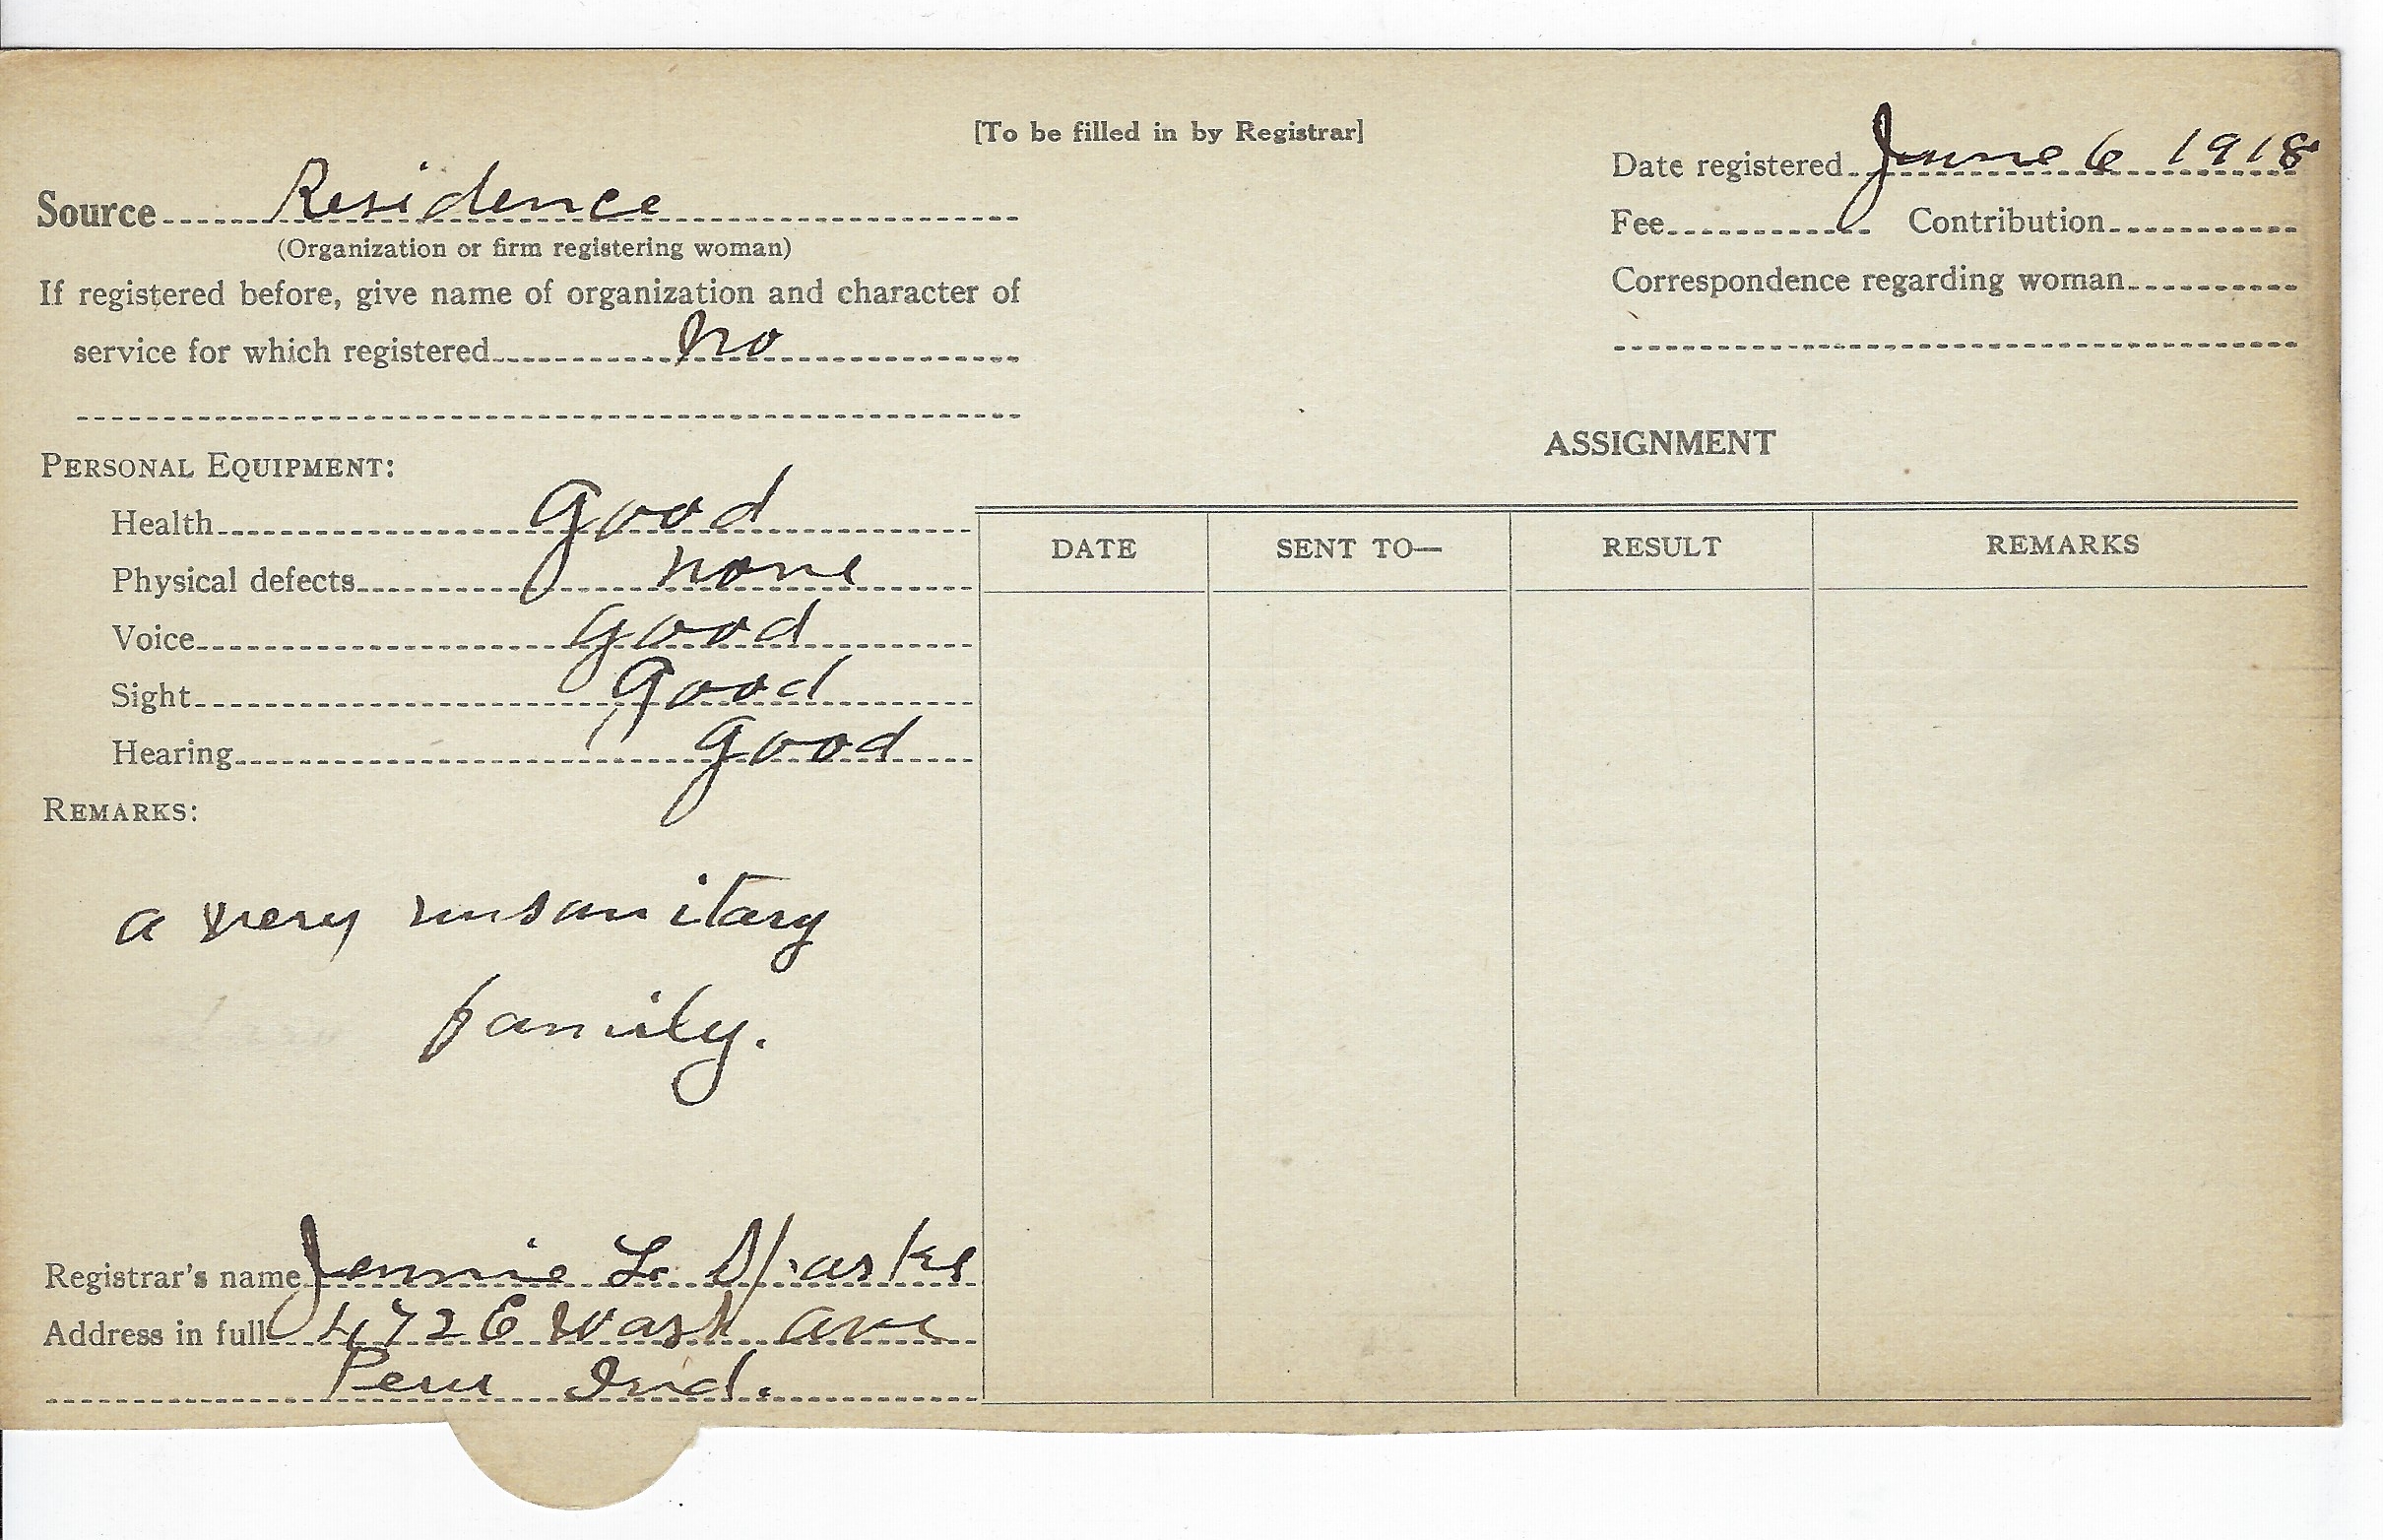 [To be filled in by Registrar]
Date registered June 6 1918
Source Residence
(Organization or firm registering woman)
Fee Contribution
If registered before, give name of organization and character of
service for which registered no
Correspondence regarding woman
PERSONAL EQUIPMENT:
Health good
Physical defects none
Voice good
Sight good
Hearing good
REMARKS:
a very unsanitary
family.
Registrar's name Jennie L. Sparks
Address in full 472 E Wash ave
Peru Ind.
ASSIGNMENT
DATE SENT TO— RESULT REMARKS